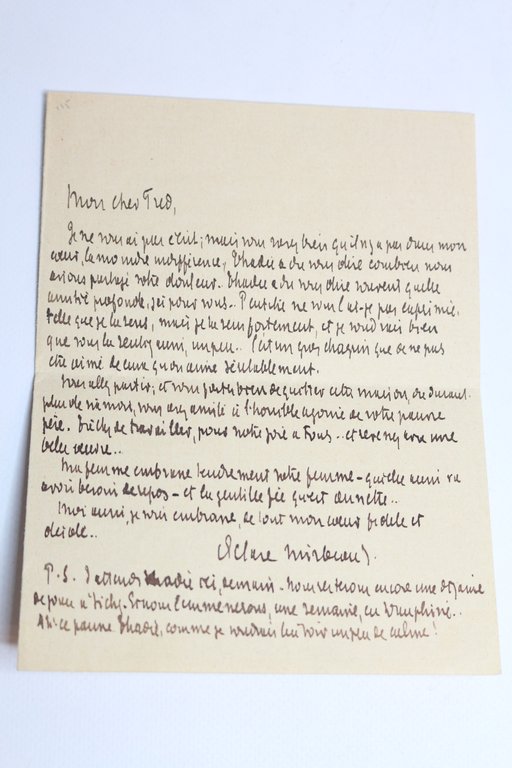 Mon cher Fred,
Je ne vous ai pas écrit ; mais vous savez bien qu'il n'y a pas dans mon
cœur, la moindre indifférence, Thadée a du vous dire combien nous
avions partagé votre douleur. Thadée a du vous dire souvent quelle
amitié profonde, j'ai pour vous.. Peut-être ne vous l'ai-je pas exprimée,
telle que je la sens, mais je la sens fortement, et je voudrais bien
que vous la sentiez aussi, un peu.. C'est un gros chagrin que de ne pas
être aimé de ceux qu'on aime véritablement.
Vous allez partir ; et vous faites bien de quitter cette maison, où durant
plus de six mois, vous avez assisté à l'horrible agonie de votre pauvre
père. Tâchez de travailler, pour notre joie à tous.. et ce sera une
belle œuvre..
Ma femme embrasse tendrement votre femme – qui elle aussi va
avoir besoin de repos – et la gentille fée qu'est Annette..
Moi aussi, je vous embrasse, de tout mon cœur fidèle et
désolé..
Octave Mirbeau.
P.S. J'attends Thadée ici, demain. Nous resterons encore une dizaine
de jours à Vichy. Et nous l'emmènerons, une semaine, en Dauphiné..
Ah! ce pauvre Thadée, comme je voudrais lui voir un peu de calme!